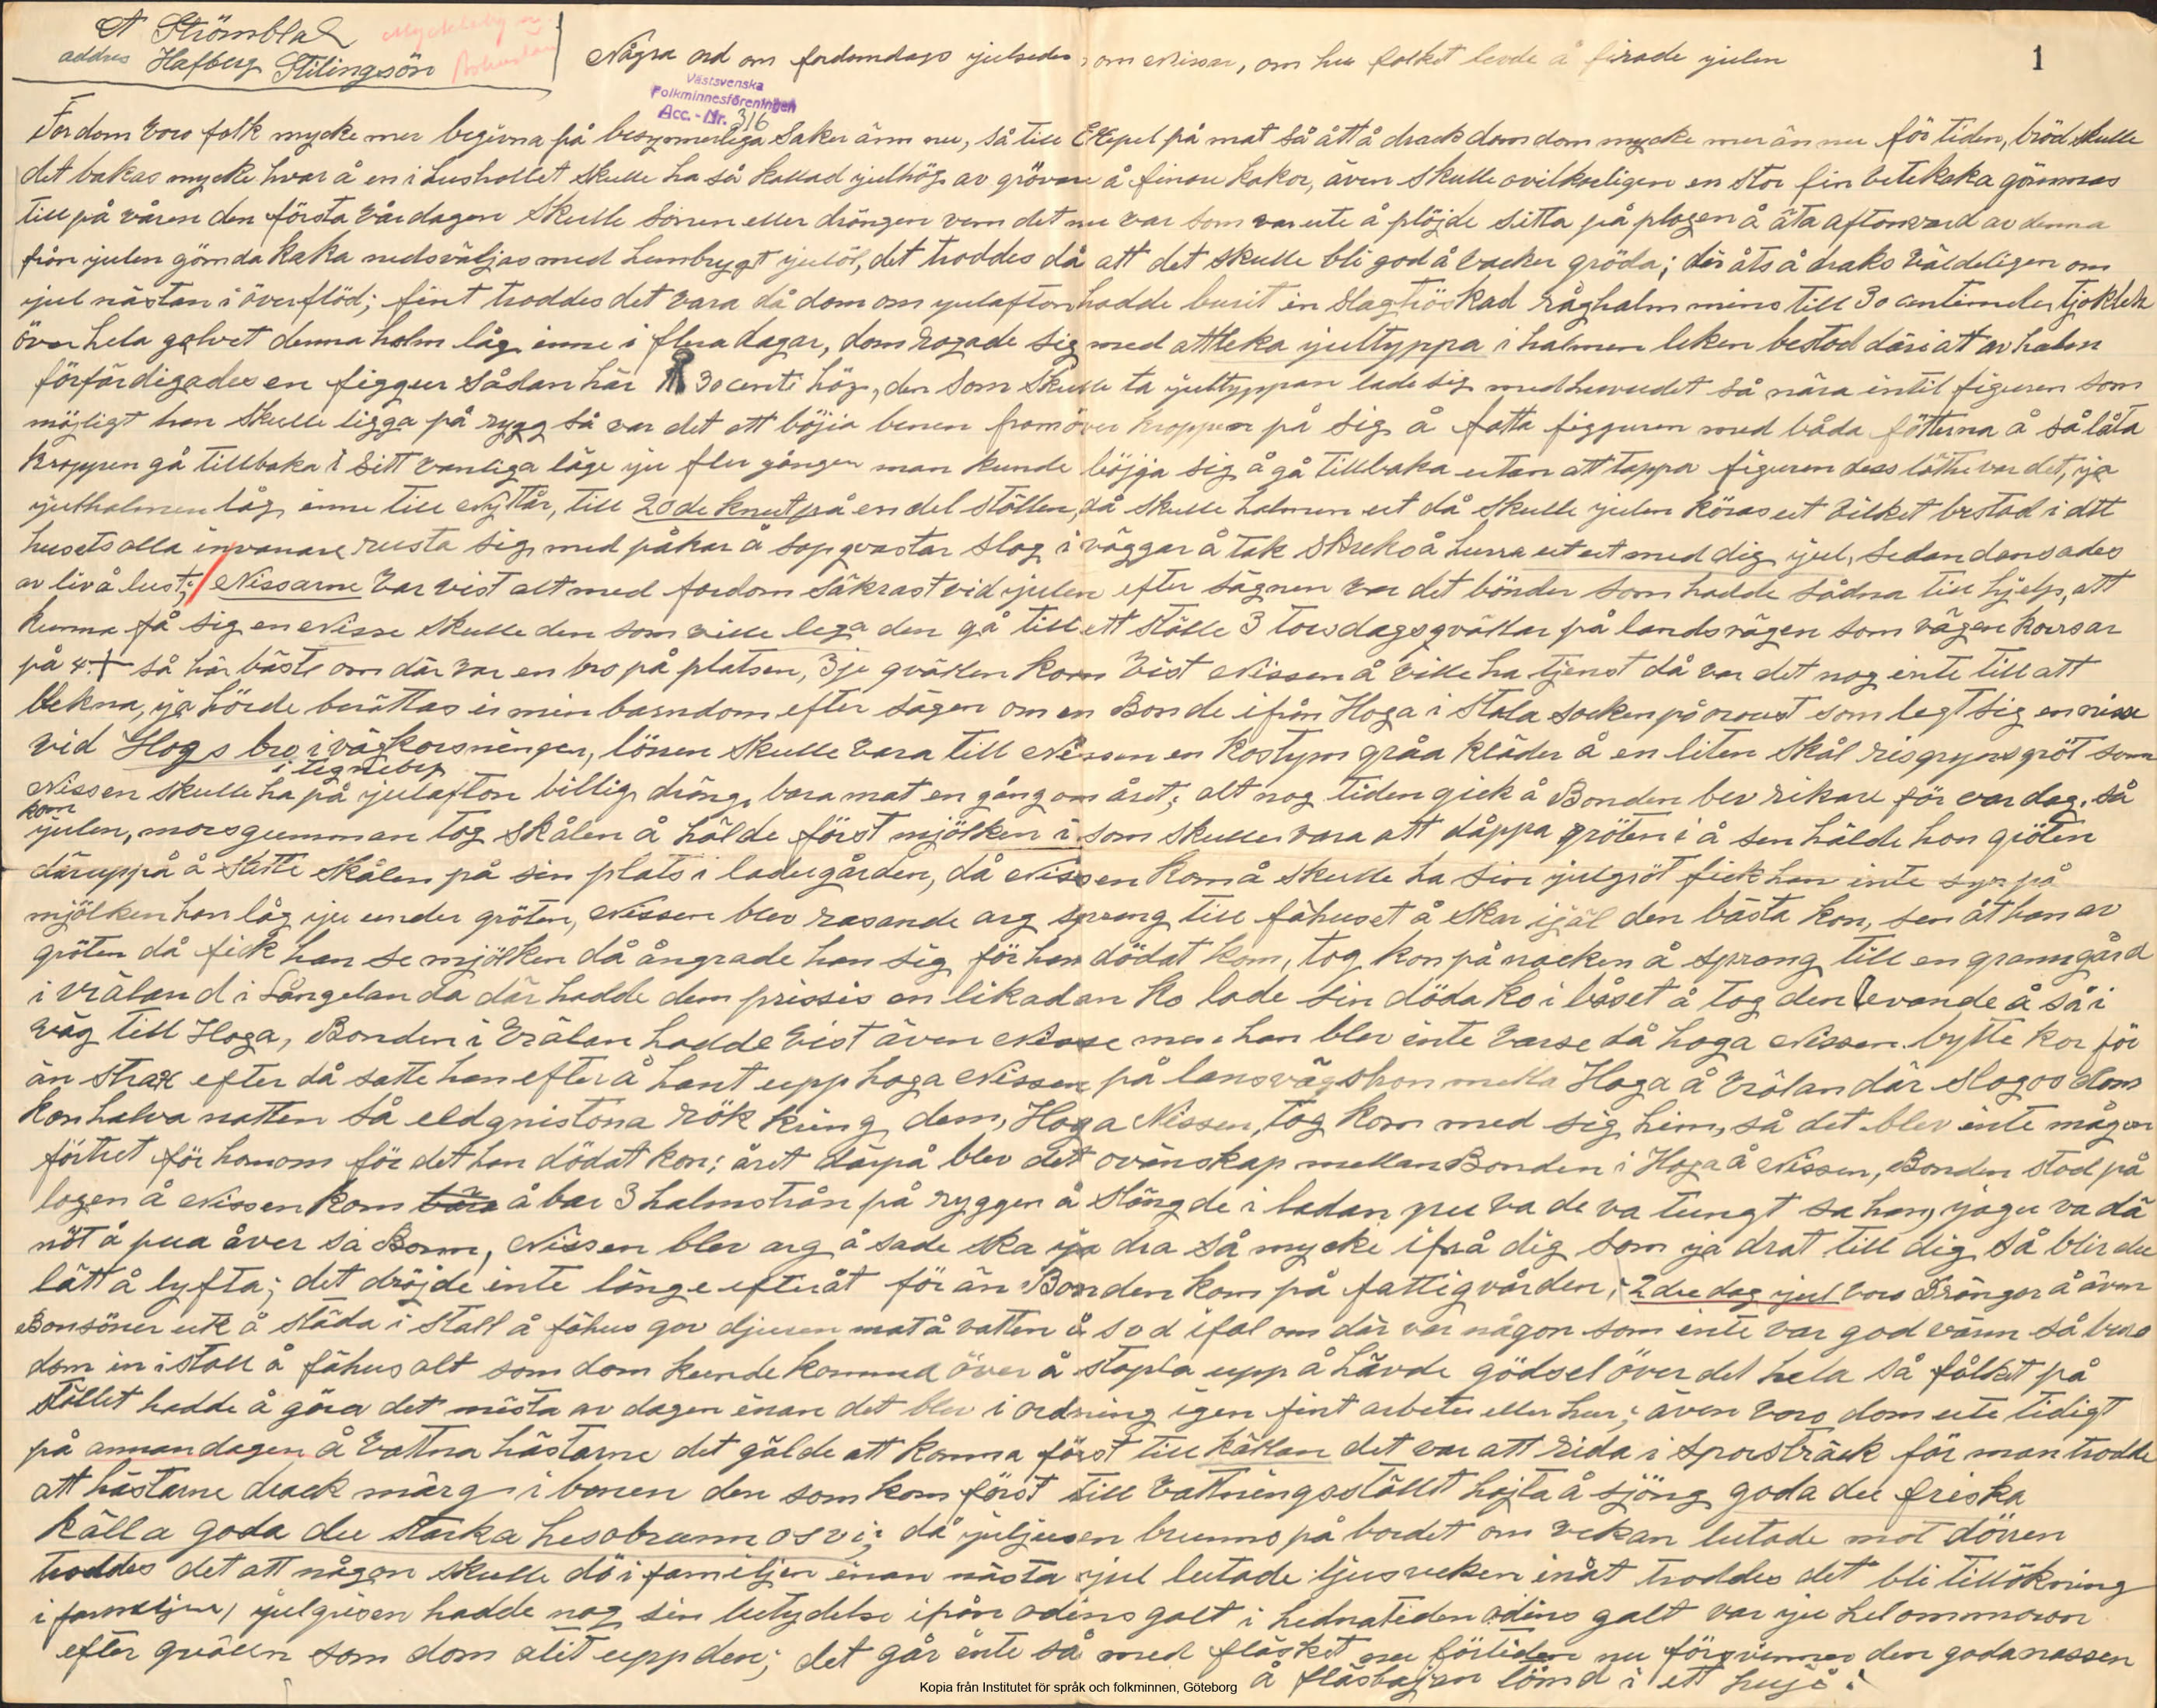 A Strömblad
addres Hafberg Flilingsön
Några ord om fordomdags julseder, om Nissar, om hur folket levde å firade julen
1
Västsvenska
Folkminnesföreningen
Acc.-Nr. 316
Fordom voro folk mycke mer begivna på besynnerliga saker änn nu, så till Exepel på mat så ått å drack dom dom mycke mer än nu för tiden, bröd skulle
det bakas mycke hvar å en i hushollet skulle ha så kallad julhög av grövre å finare kakor, även skulle ovilkorligen en stor fin vetekaka gömmas
till på våren den första vårdagen skulle sonen eller drängen vem det nu var som var ute å plöjde sitta på plogen å äta aftonvard av denna
från julen gömda kaka nedsväljas med hembrygt julöl, det troddes då att det skulle bli god å vacker gröda; där åts å draks väldeligen om
jul nästan i överflöd; fint troddes det vara då dom om julafton hadde burit in slagtröskad råghalm mins till 30 centimeter tjoklek
över hela golvet denna halm låg inne i flera dagar, dom rogade sig med att leka jultyppa i halmen leken bestod däri att av halm
förfärdigades en figgur sådan här 30 centi hög, den som skulle ta jultyppan lade sig med huvudet så nära intil figuren som
möjligt han skulle ligga på rygg så var det att böjia benen framöver kroppen på sig å fatta figguren med båda fötterna å så låta
kroppen gå tillbaka i sitt vanliga läge ju fler gånger man kunde böjja sig å gå tillbaka utan att tappa figuren dess bättre var det, ja
julhalmen låg inne till Nyttår, till 20de knut på en del ställen, då skulle halmen ut då skulle julen köras ut vilket bestod i att
husets alla invånare rusta sig med påkar å sopqvastar slog i väggar å tak skreks å hurra ut ut med dig jul, sedan dansades
av liv å lust; Nissarne var vist alt med fordom säkrast vid julen efter sägnen var det bönder som hadde sådna till hjelp, att
kunna få sig en Nisse skulle den som ville lega den gå till ett ställe 3 torsdagsqvällar på landsvägen som vägen korsar
på 4. + så här bäst om där var en bro på platsen, 3je qvällen kom vist Nissen å ville ha tjenst då var det nog inte till att
blekna, ja hörde berättas i min barndom efter sägen om en Bonde ifrån Hoga i Stala socken på orust som legt sig en nisse
vid Hogs bro i vägkorsningen, lönen skulle vara till Nissen en kostym gråa kläder å en liten skål risgrynsgröt som
Nissen skulle ha på julafton billig dräng, bara mat en gång om året; alt nog tiden gick å Bonden bev rikare för var dag, så
kom
julen, morsgumman tog skålen å hälde först mjölken i som skulle vara att dåppa gröten i å sen hälde hon gröten
däruppå å satte skålen på sin plats i ladugården, då Nissen kom å skulle ha sin julgröt fick han inte syn på
mjölken han låg ju under gröten, Nissen blev rasande arg sprang till fähuset å skar ijäl den bästa kon, sen åt han av
gröten då fick han se mjölken då ångrade han sig för han dödat kon, tog kon på nacken å sprang till en granngård
i vräland i Långelanda där hadde dem prissis en likadan ko lade sin döda ko i båset å tog den levande å så i
väg till Hoga, Bonden i vrälan hadde vist även Nisse men han blev inte varse då hoga Nissen bytte kor för
än strax efter då satte han efter å hant upp hoga Nissen på lansvägskon mella Hoga å vrälan där slogos dom
kon halva natten så eldgnistona rök kring dem, Hoga Nissen, tog kon med sig him, så det blev inte mågon
förtret för honom för det han dödat kon; året därpå blev det ovänskap mellan Bonden i Hoga å Nissen, Bonden stod på
logen å Nissen kom å bar 3 halmstrån på ryggen å slängde i ladan puu va de va tungt sa han, jagu va då
nöt å pua åver sa Bonn, Nissen blev arg å sade ska ja dra så mycke ifrå dig som ja drat till dig så blir du
lätt å lyfta; det dröjde inte länge efteråt för än Bonden kom på fattigvården; 2dre dag jul voro Drängar å även
Bonsöner ute å städa i stall å fähus gov djuren mat å vatten å sod ifal om där var någon som inte var god vänn så buro
dom in i stall å fähus alt som dom kunde komma över å stapla upp å hävde gödsel över det hela så fålket på
stället hadde å göra det mästa av dagen innan det blev i ordning igen fint arbete eller hur; även voro dom ute tidigt
på annandagen å vattna hästarne det gälde att komma först till källan det var att rida i sporsträck för man trodde
att hästarne drack märg i benen den som kom först till vattningsstället hojta å sjöng goda du friska
källa goda du starka hesabrunn os vi; då juljusen brunno på bordet om vekan lutade mot dörren
troddes det att någon skulle dö i familjen innan nästa jul lutade ljusveken inåt troddes det bli tillökning
i familjen, julgrisen hadde nog sin betydelse ifrån odins galt i hednatiden odins galt var ju hel ommoron
efter qvällen som dom ätit upp den; det går inte så med fläsket nu förtiden nu försvinner den goda nassen
å fläsbajsen lömd i ett hujö!
Kopia från Institutet för språk och folkminnen, Göteborg